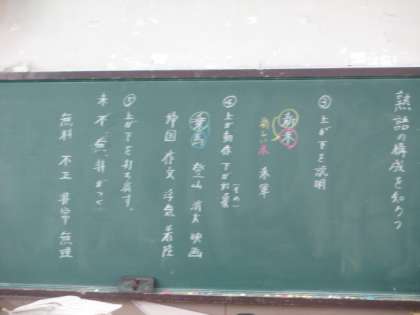 熟語の構成を知ろう
③ 上が下を説明
新米
新しい米
④ 上が動作 下が対象
乗馬 登山 消火 映画
帰国 作文 着陸
⑤ 上が下を打ち消す。
未 不 無 非がつく
無料 不正 非常 無理